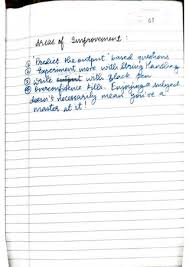 61
Areas of Improvement :
① Predict the output' based questions
② Experiment more with String Handling
③ Write output with Black Pen
④ Overconfidence kills. Enjoying a subject
doesn't necessarily mean you're a
master at it!